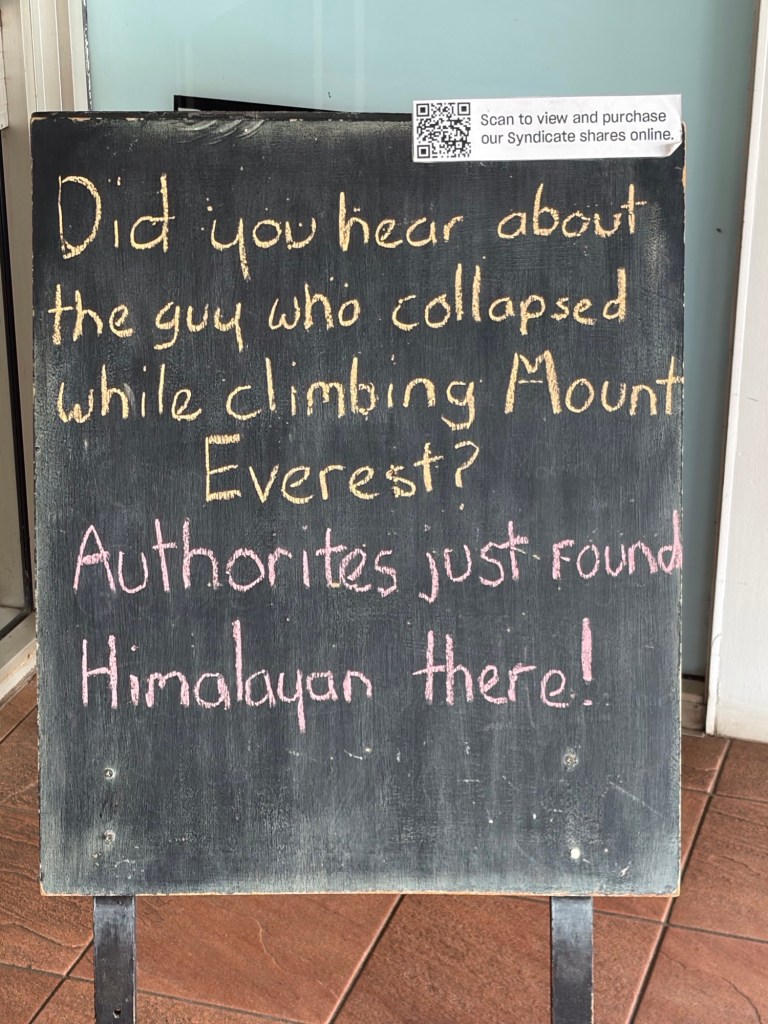 Scan to view and purchase
our Syndicate shares online.
Did you hear about
the guy who collapsed
while climbing Mount
Everest?
Authorites just found
Himalayan there!